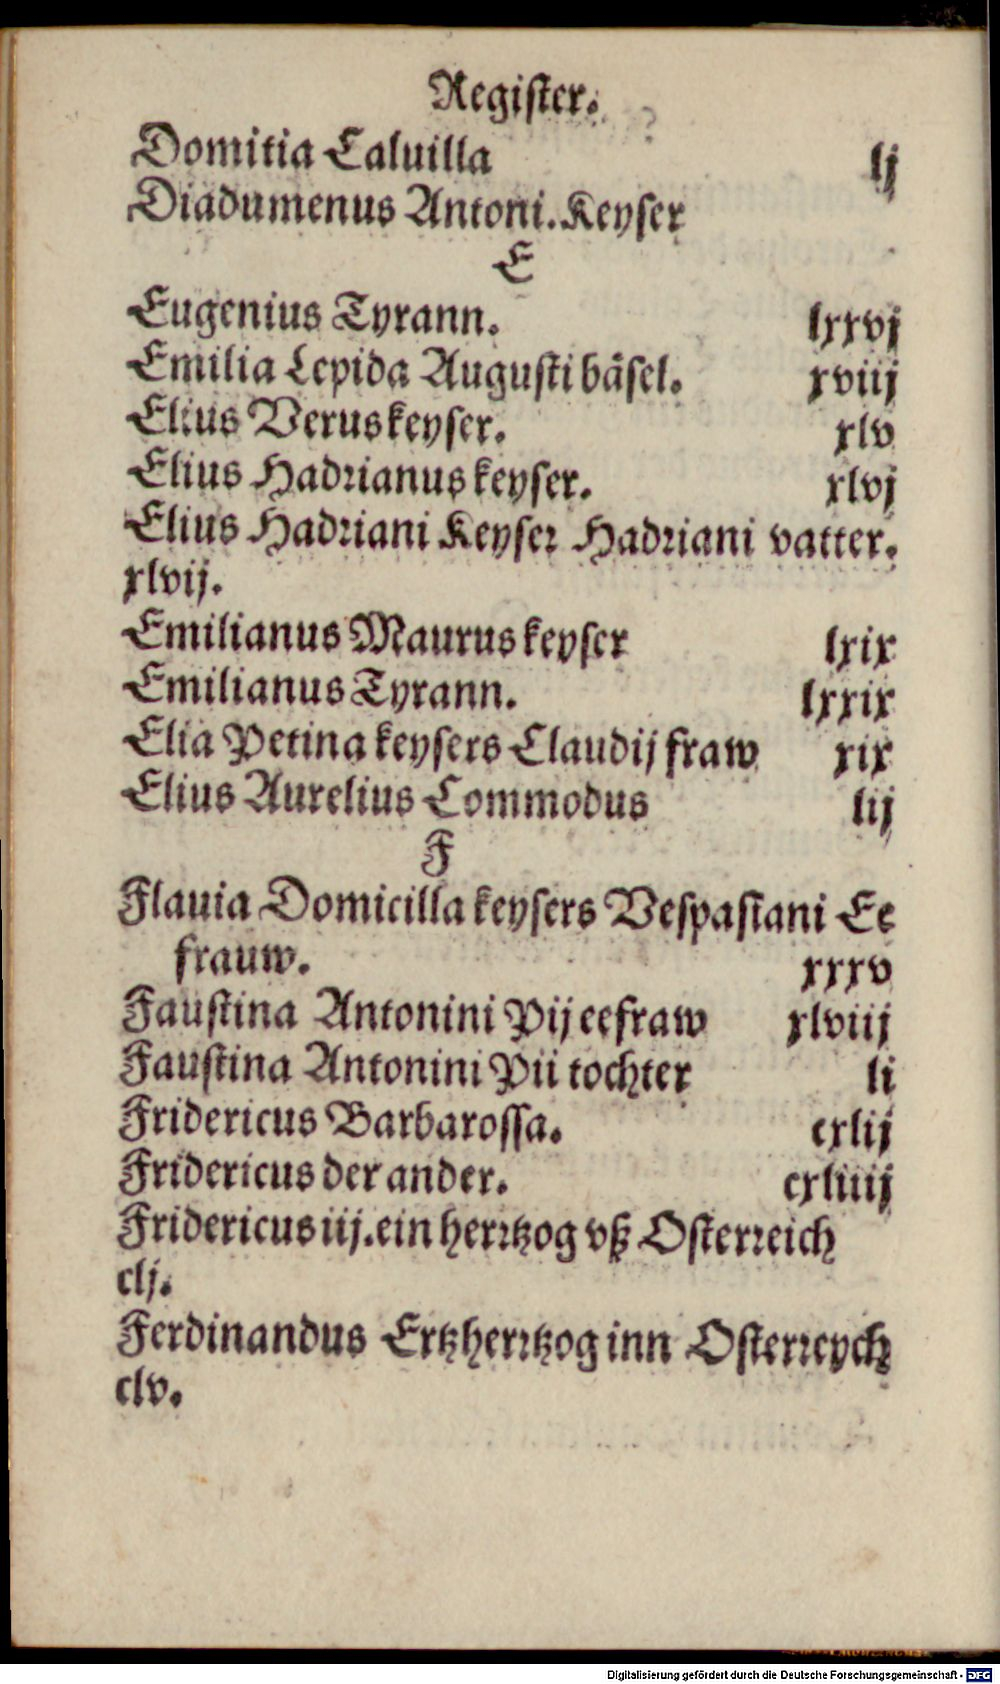 Register.
Domitia Caluilla lj
Diadumenus Antoni. Keyser
E
Eugenius Tyrann. lxxvj
Emilia Lepida Augusti bäsel. xviij
Elius Verus keyser. xlv
Elius Hadrianus keyser. xlvj
Elius Hadriani Keyser Hadriani vatter.
xlvij.
Emilianus Maurus keyser lxix
Emilianus Tyrann. lxxix
Elia Petina keysers Claudij fraw xix
Elius Aurelius Commodus lij
F
Flauia Domicilla keysers Vespasiani Ee
frauw. xxxv
Faustina Antonini Pij eefraw xlviij
Faustina Antonini Pii tochter li
Fridericus Barbarossa. cxlij
Fridericus der ander. cxliiij
Fridericus iij. ein hertzog vß Osterreich
clj.
Ferdinandus Ertzhertzog inn Osterreych
clv.
Digitalisierung gefördert durch die Deutsche Forschungsgemeinschaft - DFG